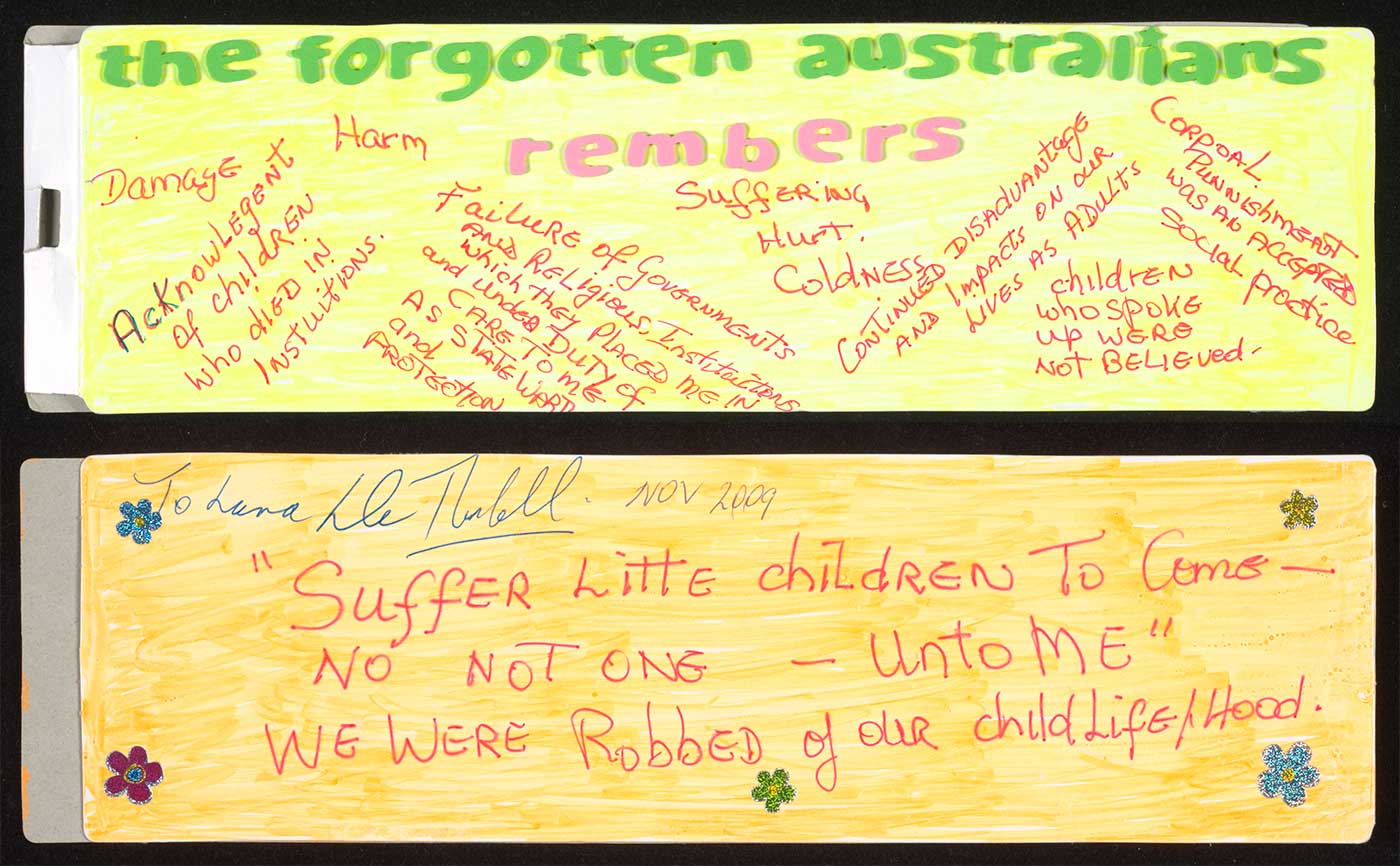 the forgotten australians
rembers
Damage
Harm
AcKnowLEgENT
of childREN
who diED IN
INSTUITIONS.
FaiLURE of GOVERNMENTS
AND RELigious Instituitions
which they PLACED ME IN
and UNDER DUTY of
CARE To ME
AS STATE WARD
and
PROTECTION
SuffERiNg
Hurt.
ColdNESS
CONTINUED DISADVANTAGE
AND impACTS ON OUR
LIVES AS ADULTS
childREN
who SPOKE
UP WERE
NOT BELIEVED-
CORPOAL
PUNNIShMENT
WAS AN ACCEPTED
SOCIAL practice
To Lana
NOV 2009
"SuffER LittE childREN To Come —
NO NOT ONE — Unto ME"
WE WERE RobbED of OUR childLife/Hood.